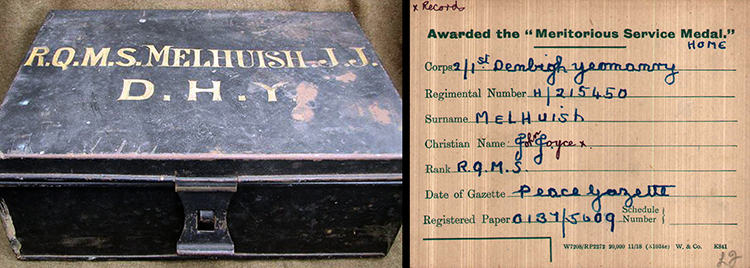 R.Q.M.S. MELHUISH. J.J.
D.H.Y.
x Record
Awarded the "Meritorious Service Medal."
HOME
Corps 2/1st Denbigh Yeomanry
Regimental Number H/215450
Surname MELHUISH
Christian Name Joyce x
Rank R.Q.M.S.
Date of Gazette Peace Gazette
Registered Paper 0137/5609 Schedule Number
W7208/RP2272 20,000 11/18 W. & Co. K841